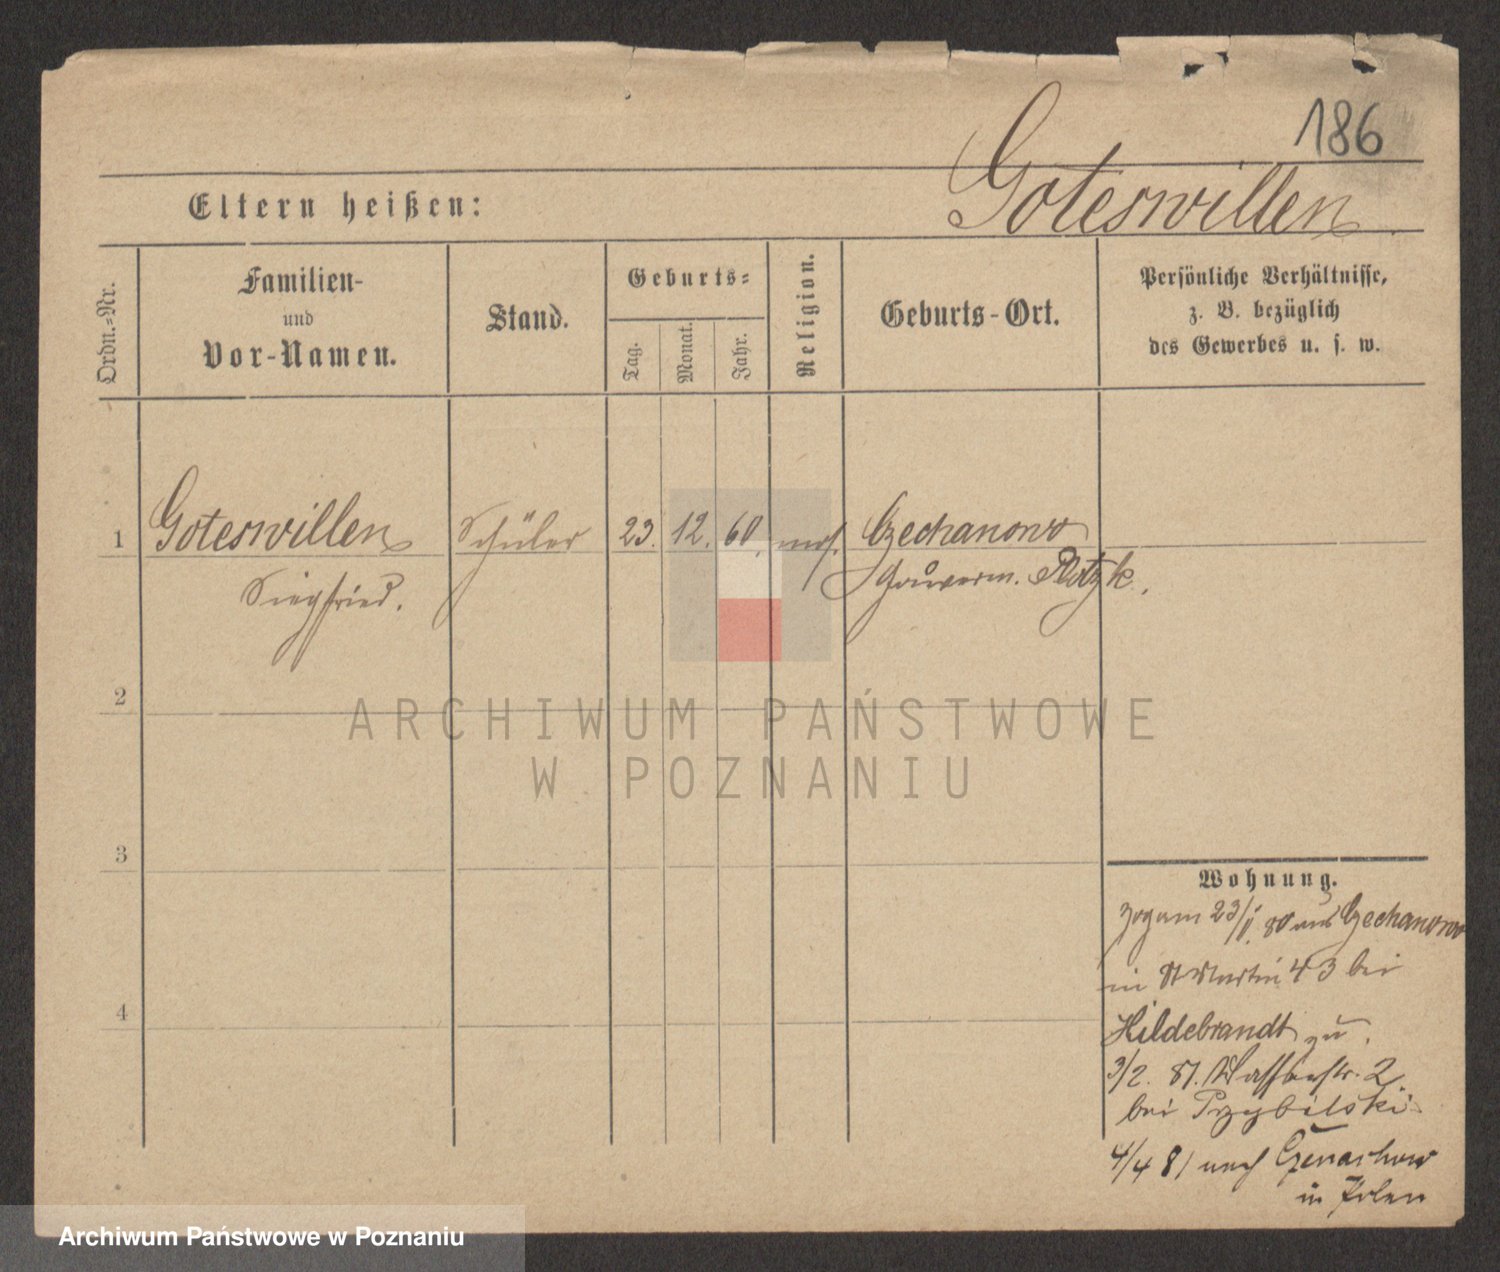 186
Goteswillen
Eltern heißen:
Ordn.-Nr.
Familien-
und
Vor-Namen.
Stand.
Geburts-
Tag.
Monat.
Jahr.
Religion.
Geburts-Ort.
Persönliche Verhältnisse,
z. B. bezüglich
des Gewerbes u. s. w.
1
Goteswillen
Schüler
23. 12. 60.
mos.
Czechanowo
Siegfried.
Gouverm. Plotzk.
2
ARCHIWUM PAŃSTWOWE
W POZNANIU
3
Wohnung.
zog am 23/1. 80 aus Czechanowo
in St Martin 43 bei
4
Hildebrandt zu.
3/2. 81. Wasserstr. 2
bei Przybilski
4/4 81 nach
in Polen
Archiwum Państwowe w Poznaniu